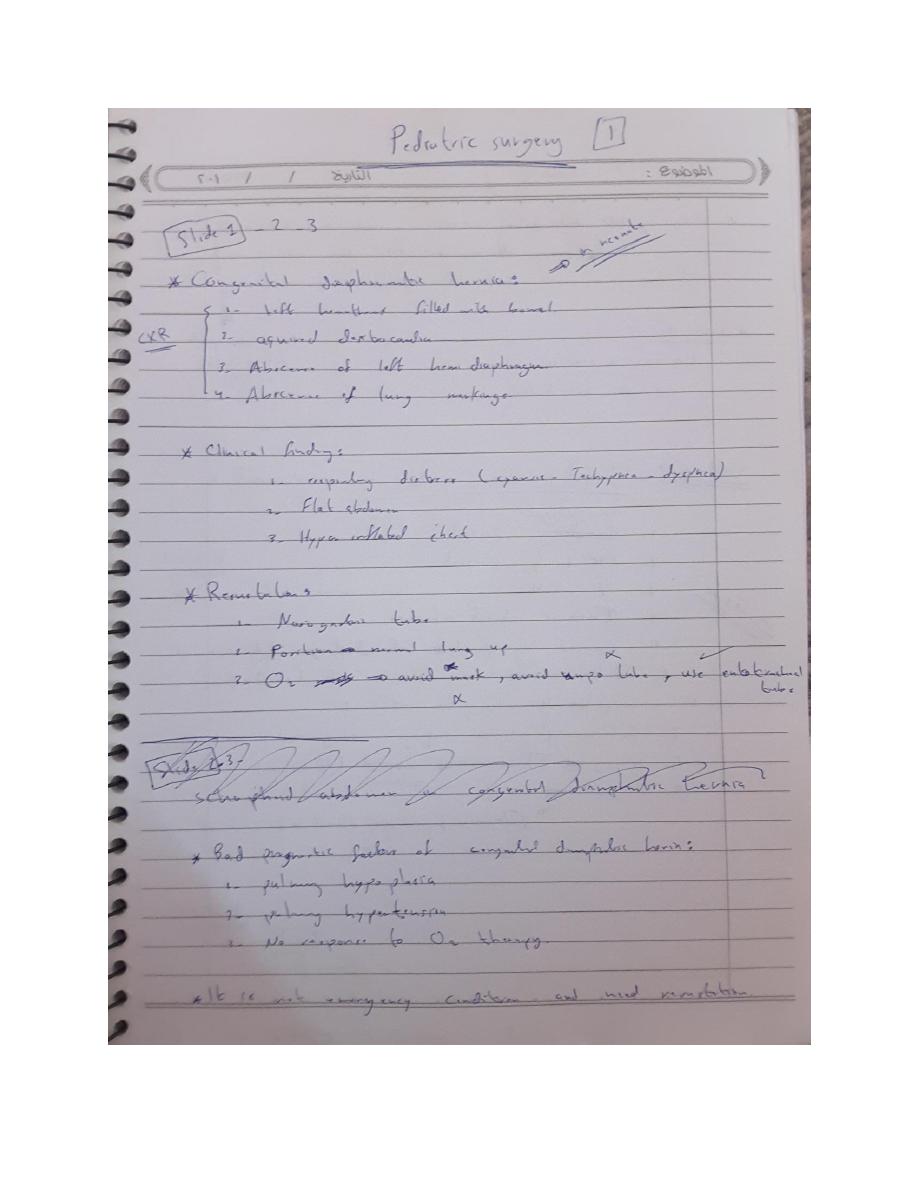 Pediatric surgery 1
الموضوع : التاريخ / / ٢٠١
Slide 1 - 2 - 3
in neonate
* Congenital diaphramatic hernia:
1- Left hemithorax filled with bowel
CXR
2- aquired dextrocardia
3- Abscence of left hemidiaphragm
4- Abscence of lung markings
* Clinical finding:
1- respiratory distress (cyanosis - Tachypnea - dyspnea)
2- Flat abdomen
3- Hyper inflated chest
* Resuscitation:
1- Nasogastric tube
2- Position normal lung up
3- O2 → avoid mask, avoid tube, use endotracheal
tube
Slide 2-3-
scaphoid abdomen in congenital diaphramatic hernia
* Bad prognostic factors of congenital diaphramatic hernia:
1- pulmonary hypoplasia
2- pulmonary hypertension
3- No response to O2 therapy.
* It is not emergency condition and need resuscitation